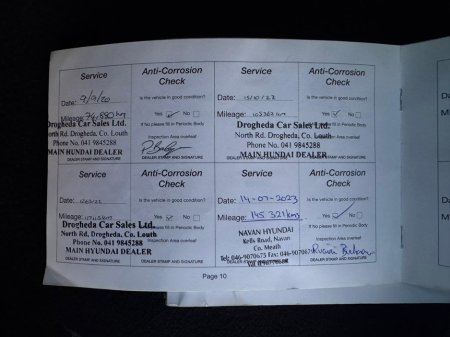 Service
Anti-Corrosion Check
Date: 9/9/20
Is the vehicle in good condition?
Mileage: 74,880 km
Yes No
Drogheda Car Sales Ltd.
If no please fill in Periodic Body
North Rd. Drogheda, Co. Louth
Inspection Area overleaf
Phone No. 041 9845288
MAIN HUNDAI DEALER
DEALER STAMP AND SIGNATURE
DEALER STAMP AND SIGNATURE
Service
Anti-Corrosion Check
Date: 15/10/22
Is the vehicle in good condition?
Mileage:
Yes No
Drogheda Car Sales Ltd.
If no please fill in Periodic Body
North Rd. Drogheda, Co. Louth
Inspection Area overleaf
Phone No. 041 9845288
MAIN HUNDAI DEALER
DEALER STAMP AND SIGNATURE
DEALER STAMP AND SIGNATURE
Service
Anti-Corrosion Check
Date:
Is the vehicle in good condition?
Mileage:
Yes No
Drogheda Car Sales Ltd.
If no please fill in Periodic Body
North Rd. Drogheda, Co. Louth
Inspection Area overleaf
Phone No. 041 9845288
MAIN HUNDAI DEALER
DEALER STAMP AND SIGNATURE
DEALER STAMP AND SIGNATURE
Service
Anti-Corrosion Check
Date: 14-07-2023
Is the vehicle in good condition?
Mileage: 145 321km
Yes No
NAVAN HYUNDAI
If no please fill in Periodic Body
Kells Road, Navan
Inspection Area overleaf
Co. Meath
Tel: 046-9070675 Fax: 046-907067
DEALER STAMP AND SIGNATURE
DEALER STAMP AND SIGNATURE
Page 10